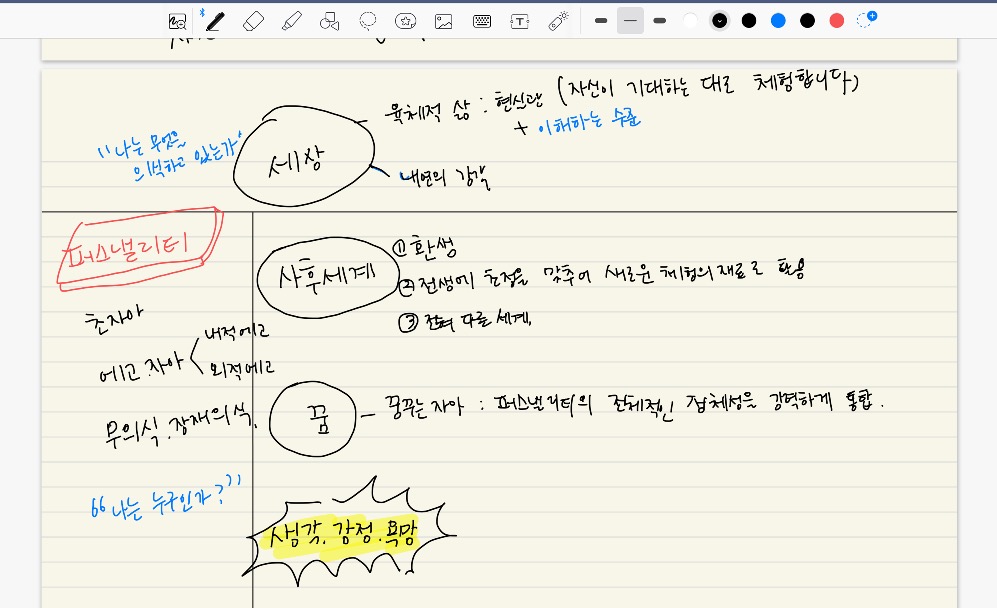 육체적 삶 : 현실관 (자신이 기대하는 대로 체험합니다)
+ 이해하는 수준
"나는 무엇을
의식하고 있는가"
세상
내면의 감각
퍼스낼리티
초자아
에고 자아
내적에고
외적에고
무의식. 잠재의식.
"나는 누구인가?"
사후세계
① 환생
② 전생에 초점을 맞추어 새로운 체험의 재료로 활용
③ 전혀 다른 세계.
꿈
꿈꾸는 자아 : 퍼스낼리티의 전체적인 정체성을 강력하게 통합.
생각. 감정. 욕망